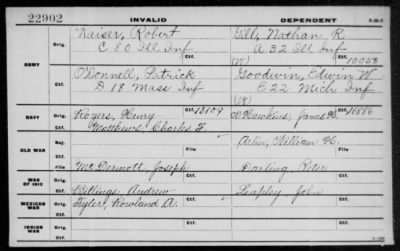 22902 INVALID DEPENDENT
Kaiser, Robert Gill, Nathan R.
Orig. C 80 Ill Inf A 32 Ill Inf
ARMY (W) Ctf. 10058
O'Donnell, Patrick Goodwin, Edwin W
Ctf. D 18 Mass Inf E 22 Mich Inf
(W)
NAVY Orig. Rogers, Henry Ctf. 13109 Hawkins, James Ctf. 10886
Ctf. Matthews, Charles F.
OLD WAR Rej. Arlin, William H.
File File
Ctf. McDermott, Joseph Darling, Peter
WAR OF 1812 Orig.
Ctf. Billings, Andrew Leapley, John
MEXICAN WAR Orig. Tyler, Rowland A.
Ctf. Ctf.
INDIAN WAR Orig.
Ctf. Ctf.